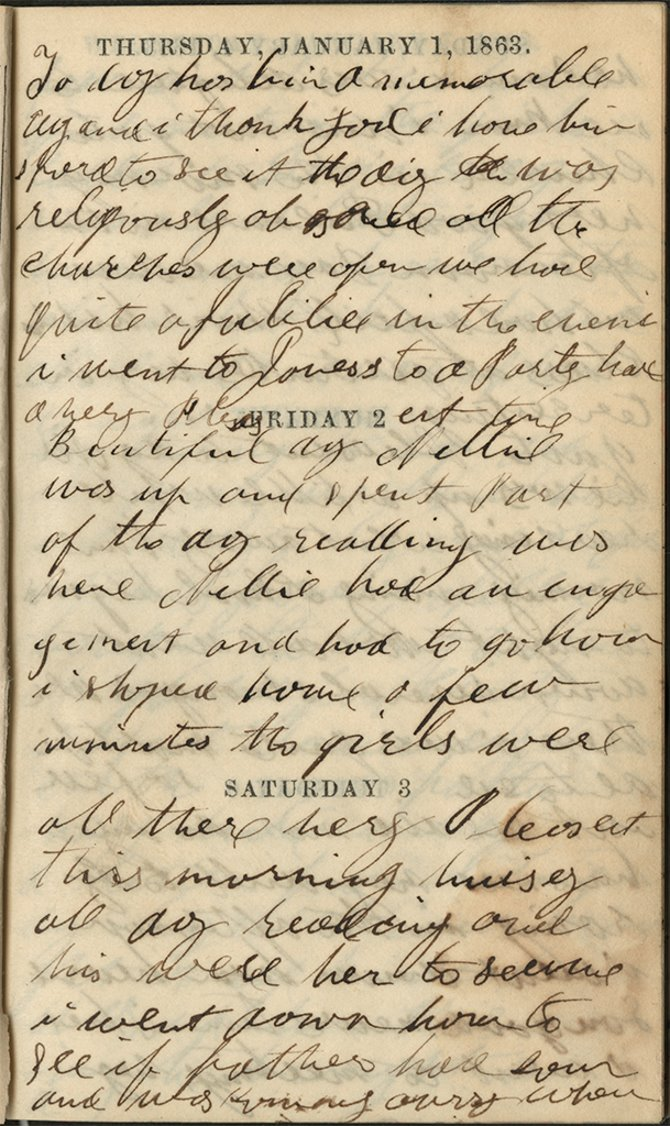 THURSDAY, JANUARY 1, 1863.
To day has bin a memorable
day and i thank god i have bin
spard to see it the day was
religously observed all the
churches were open we had
quite a Jubilee in the evenin
i went to Joness to a Party had
a very Pleas ent time
FRIDAY 2
Beautiful day Nellie
was up and spent Part
of the day reading was
here Nellie had an enga
gement and had to go home
i stoped home a few
minutes the girls were
SATURDAY 3
all there very Pleasent
this morning buisey
all day reading and
his were her to see me
i went down home to
see if father had
and was away when